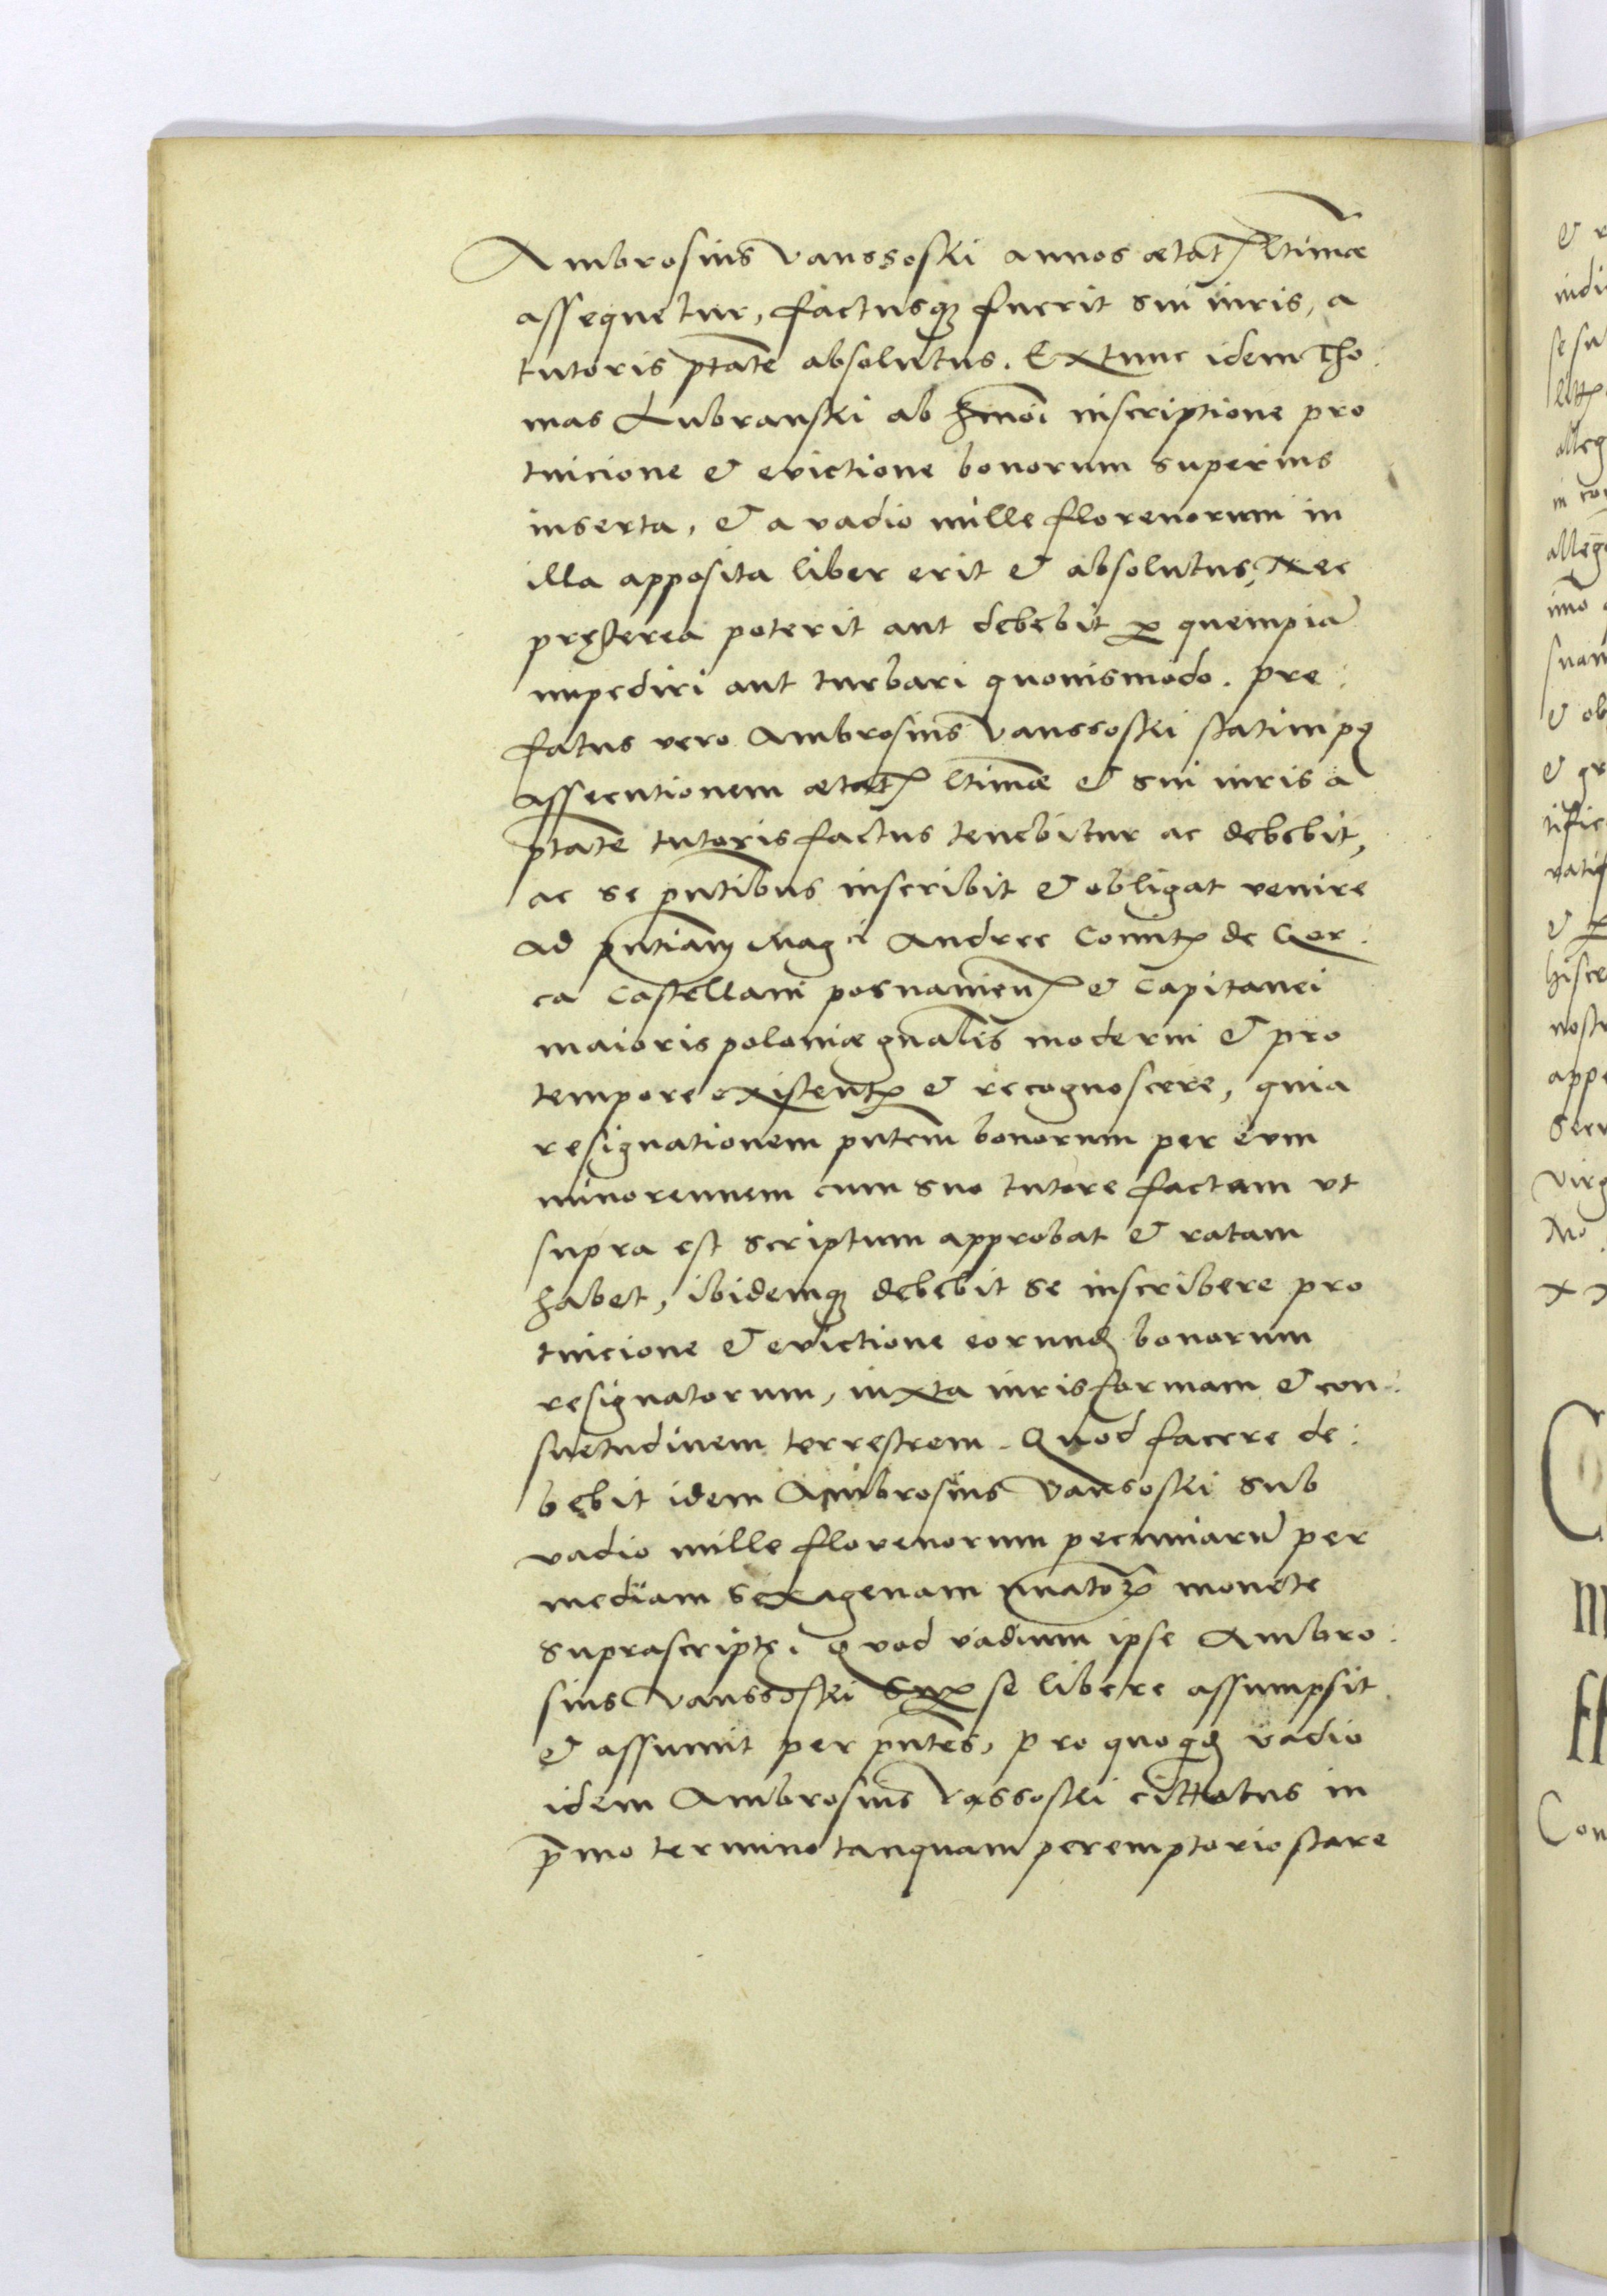 Ambrosius Vanssoski annos ætatꝭ ltimæ
assequetur, factusqꝫ fuerit sui iuris, a
tutoris ptāte absolutus. Extunc idem Tho:
mas Lubranski ab hmōi inscriptione pro
tuicione & evictione bonorum superius
inserta, & a vadio mille florenorum in
illa apposita liber erit & absolutus, Nec
pręterea poterit aut debebit ꝑ quempiā
impediri aut turbari quouismodo. Pre:
fatus vero Ambrosius Vanssoski statim pꝰ
assecutionem ætatꝭ ltimæ & sui iuris a
ptāte tutoris factus tenebitur ac debebit,
ac se pn̄tibus inscribit & obligat venire
ad pn̄tiam Magci Andree Comitꝭ de Gor:
ca Castellani posnanienꝭ & Capitanei
maioris poloniæ gn̄alis moderni & pro
tempore existentꝭ & recognoscere, quia
resignationem pn̄tem bonorum per eum
minorennem cum suo tutore factam vt
supra est scriptum approbat & ratam
habet, ibidemqꝫ debebit se inscribere pro
tuicione & evictione eorundꝫ bonorum
resignatorum, iuxta iuris formam & con:
suetudinem terrestrem. Quod facere de:
bebit idem Ambrosius Vansoski sub
vadio mille florenorum pecuniarū per
mediam sexagenam nūatoꝝ monete
suprascriptę. Quod vadium ipse Ambro:
sius Vanssoski suꝑ se libere assumpsit
& assumit per pn̄tes, pro quo qdꝫ vadio
idem Ambrosius Vassoski cittatus in
pͥmo termino tanquam peremptorio stare